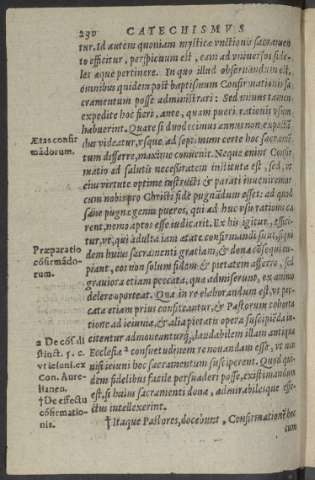 230 CATECHISMVS
tur. Id autem quoniam mysticæ vnctionis sacramen
to efficitur, perspicuum est, eam ad vniuersos fide-
les æque pertinere. In quo illud obseruandum est,
omnibus quidem post baptismum Confirmationis sa
cramentum posse administrari: Sed minus tamen
expedire hoc fieri, ante, quam pueri rationis vsum
habuerint. Quare si duodecimus annus non expectã
Ætas confir
dus videatur, vsque ad septimum certe hoc sacramẽ
mãdorum.
tum differre, maxime conuenit. Neque enim Confir
matio ad salutis necessitatem instituta est, sed, vt
eius virtute optime instructi & parati inueniremur
cum nobis pro Christi fide pugnãdum esset: ad quod
sane pugnæ genus pueros, qui ad huc vsu rationis ca
rent, nemo aptos esse iudicarit. Ex his igitur, effici-
tur, vt, qui adulta iam ætate confirmandi sunt, siqui
Præparatio
dem huius sacramenti gratiam, & dona cõsequi cu-
cõfirmãdo-
piant, eos non solum fidem, & pietatem afferre, sed
rum.
grauiora etiam peccata, quæ admiserunt, ex animo
delere oporteat. Qua in re elaborandum est, vt pec-
cata etiam prius confiteantur, & Pastorum cohorta
tione ad ieiunia, & alia pietatis opera suscipiẽda in-
a De cõs. di
citentur admoneanturq́;, laudabilem illam antiquæ
stinct. 5. c.
Ecclesiæ a consuetudinem renouandam esse, vt non
vt ieiuni. ex
nisi ieiuni hoc sacramentum susciperent. Quod qui-
Con. Aure-
dem fidelibus facile persuaderi posse, existimandum
lianen.
est, si huius sacramenti dona, admirabilesque effe-
† De effectu
ctus intellexerint.
cõfirmatio-
nis.
† Itaque Pastores, docebunt, Confirmationẽ hoc
cum